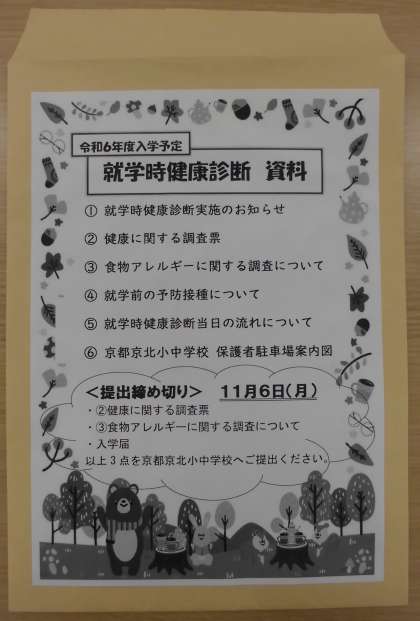 令和6年度入学予定
就学時健康診断 資料
① 就学時健康診断実施のお知らせ
② 健康に関する調査票
③ 食物アレルギーに関する調査について
④ 就学前の予防接種について
⑤ 就学時健康診断当日の流れについて
⑥ 京都京北小中学校 保護者駐車場案内図
＜提出締め切り＞ 11月6日(月)
・②健康に関する調査票
・③食物アレルギーに関する調査について
・入学届
以上3点を京都京北小中学校へご提出ください。